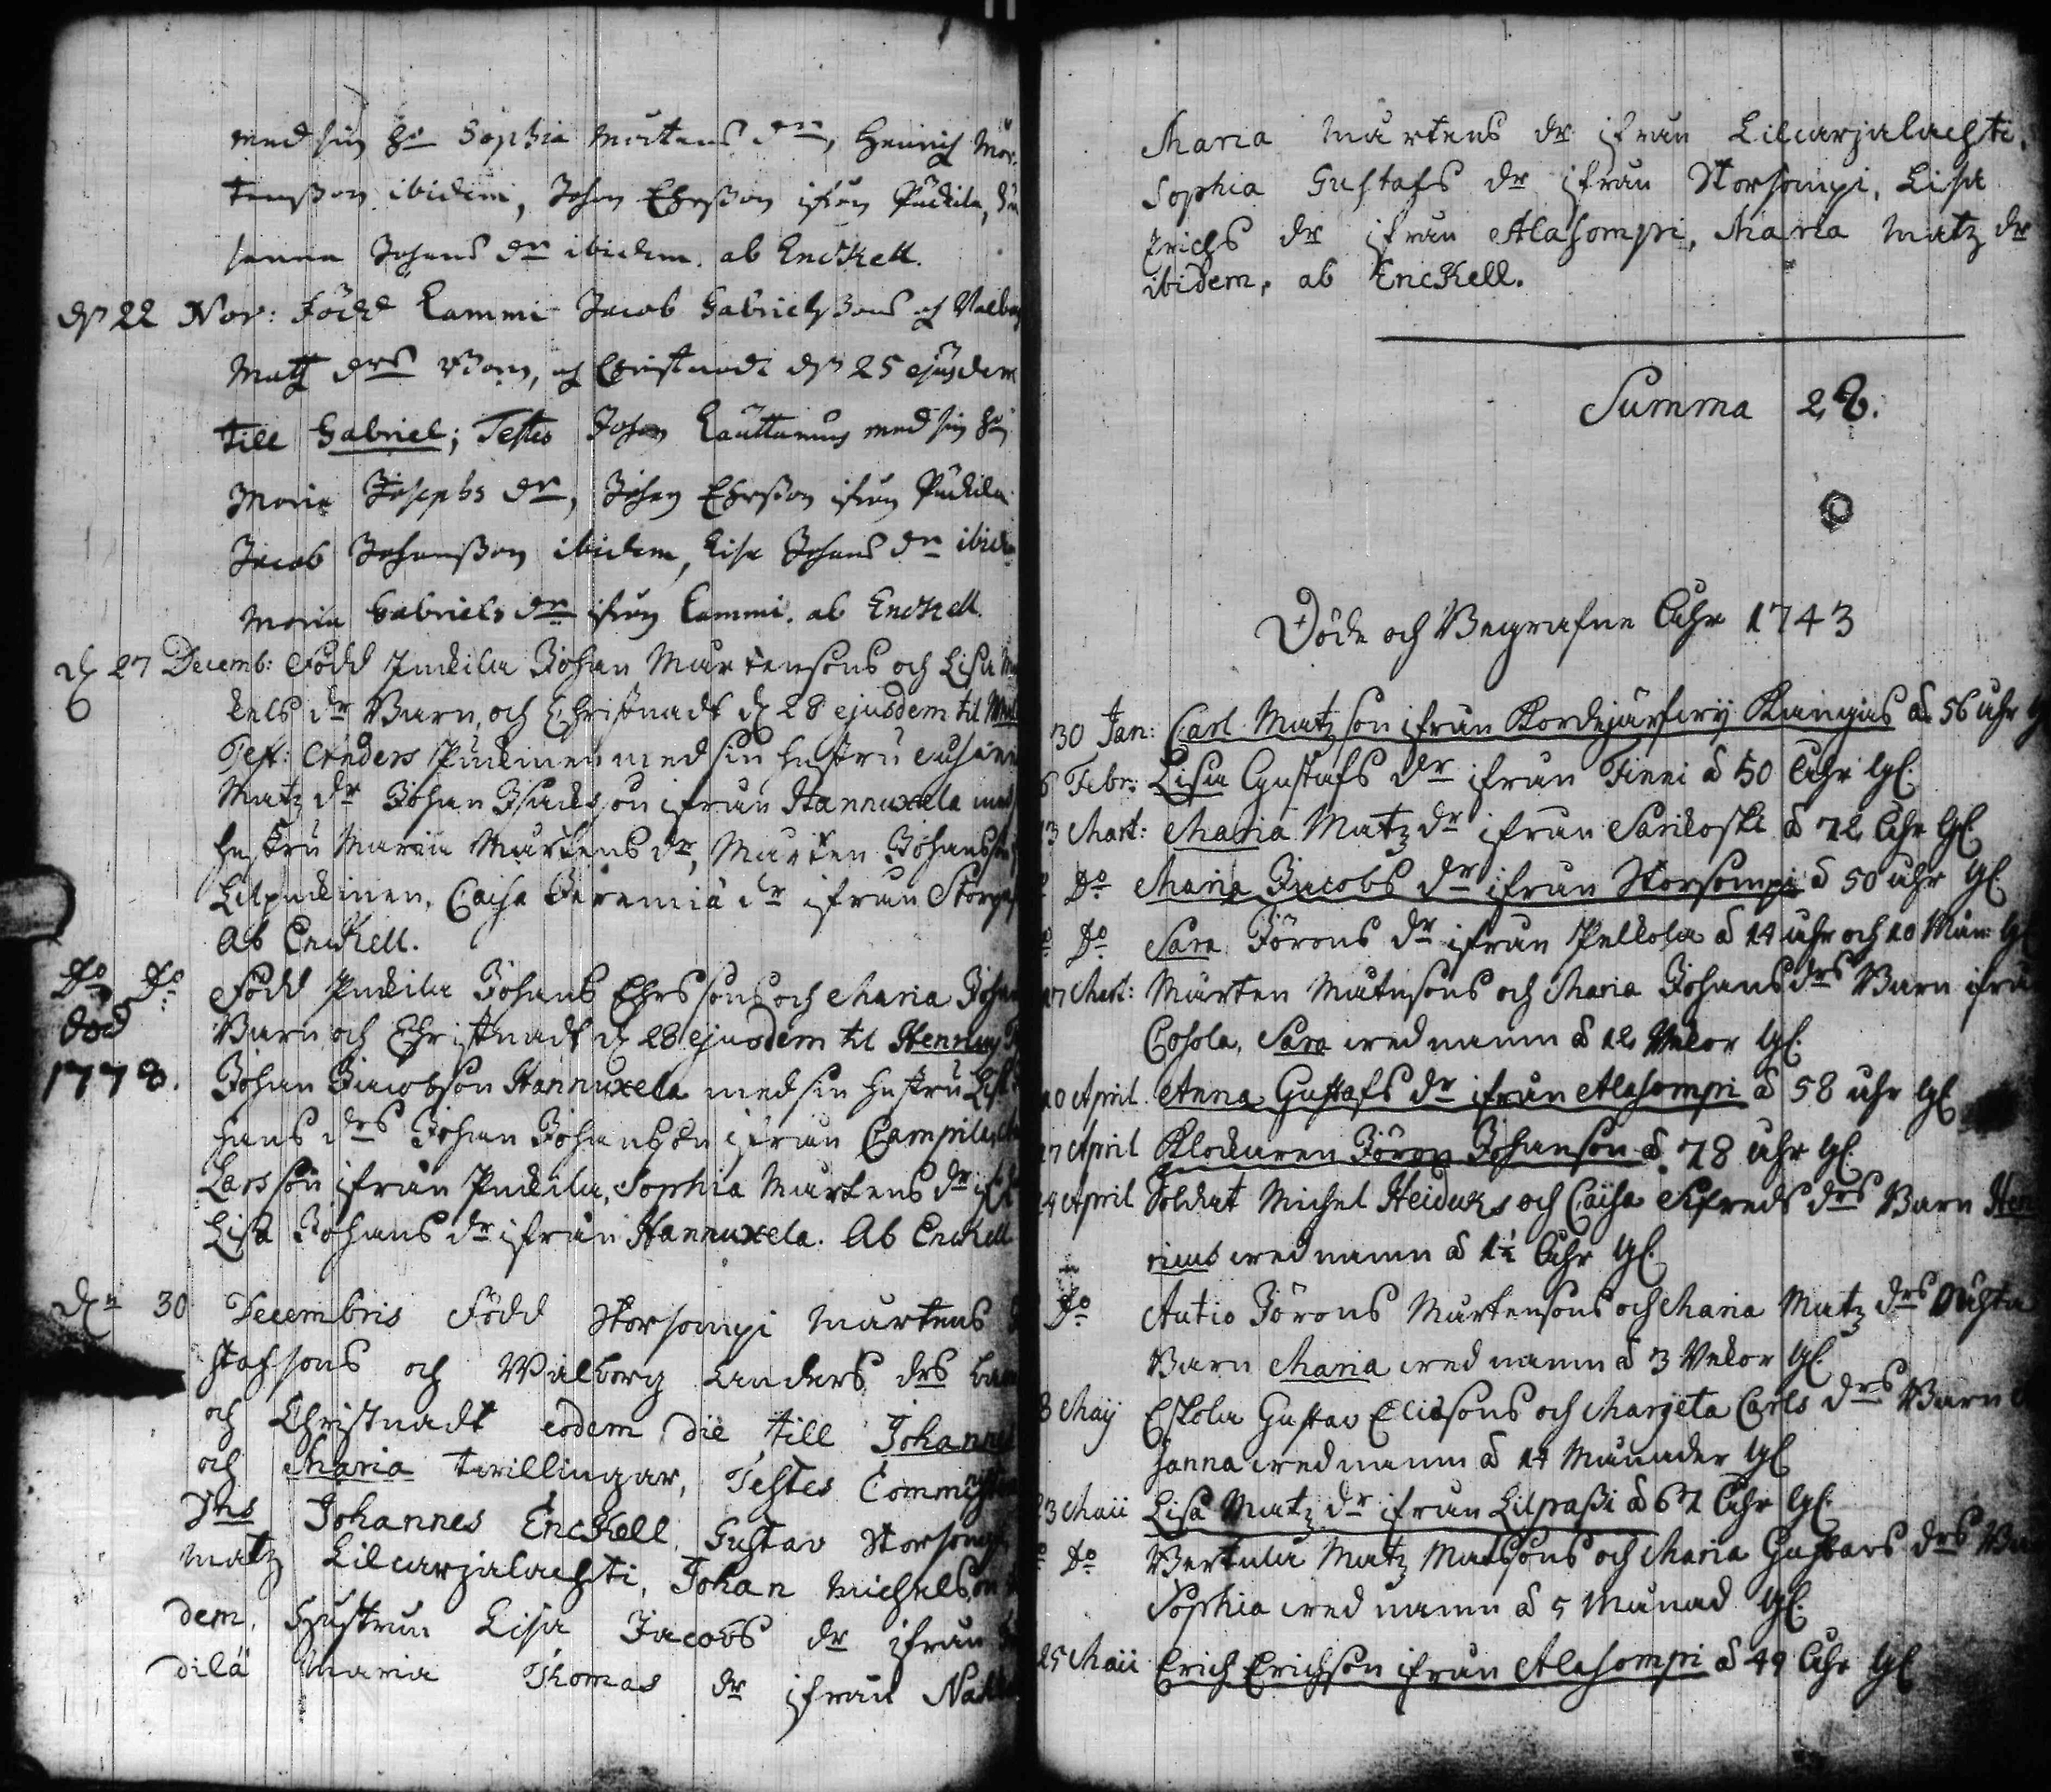 med sin h:o Sophia Mårtens dr, Henrich Mår-
tensson ibidem, Johan Ehrsson ifrån Puckila,
sanna Johans dr ibidem. ab Enckell.
d 22 Nov: Född Lammi Jacob Gabrielssons och Valbor
Matz drs Barn, och Christnadt d 25 ejusdem
till Gabriel; Testes Johan med sin h:o
Maria Josephs dr, Johan Ehrsson ifrån Puckila
Jacob Johansson ibidem, Lisa Johans dr ibidem
Maria Gabriels dr ifrån Lammi. ab Enckell.
d 27 Decemb: Född Puckila Johan Mårtensons och Lisa
kels dr Barn, och Christnadt d 28 ejusdem til
Test: Anders Puckinen med sin hustru Susann
Matz dr Johan Isacksson ifrån Hannuxela med
hustru Maria Mårtens dr, Mårten Johansson
Lilpuckinen, Caisa Jeremiä dr ifrån
Ab Enckell.
Do Do Född Puckila Johans Ehrssons och Maria Johan
död Barn och Christnadt d 28 ejusdem til Henricus
1778. Johan Jacobson Hannuxela med sin hustru Lisa
hans drs Johan Johansson ifrån
Larsson ifrån Puckila, Sophia Mårtens dr
Lisa Johans dr ifrån Hannuxela. Ab Enckell
Dn 30 Decembris Född Storsompi Mårtens
stafsons och Walborg Anders drs barn
och Christnadt eodem die till Johannes
och Maria twillingar, Testes
Dns Johannes Enckell, Gustav Storsompi
Matz Lilcarjalachti, Johan Michelson
dem, Hustrun Lisa Jacobs dr ifrån
dilä Maria Thomas dr ifrån
Maria Mårtens dr ifrån Lilcarjalachti.
Sophia Gustafs dr ifrån Storsompi, Lisa
Erichs dr ifrån Alasompi, Maria Matz dr
ibidem, ab Enckell.
Summa 28.
Döde och Begrafne Åhr 1743
30 Jan: Carl Matzson ifrån Kordejärfwij Kangas å 56 åhr
Febr: Lisa Gustafs dr ifrån Finni å 50 Åhr
3 Mart: Maria Matz dr ifrån Sarikoski å 72 Åhr
Do Maria Jacobs dr ifrån Storsompi å 50 åhr
Do Sara Jörons dr ifrån Pelkola å 14 åhr och 10 Mån:
17 Mart: Mårten Matssons och Maria Johans drs Barn ifrå
Cohola, Sara wed namn å 12 Wekor
10 April Anna Gustafs dr ifrån Alasompi å 58 åhr
17 April Klockaren Jöron Johanson å 78 åhr
24 April Soldat Michel Heiduks och Caisa Sifreds drs Barn Hen
ricus wed namn å 1½ Åhr
Do Autio Jörons Mårtensons och Maria Matz drs
Barn Maria wed namn å 3 Wekor
8 Maij Eskola Gustav Eliæsons och Margeta Carls drs Barn
Hanna wed namn å 14 Månader
13 Maii Lisa Matz dr ifrån Lilpaßi å 67 Åhr
Do Bertula Matz Matssons och Maria Gustavs drs
Sophia wed namn å 5 Månad
25 Maii Erich Erichson ifrån Alasompi å 49 Åhr